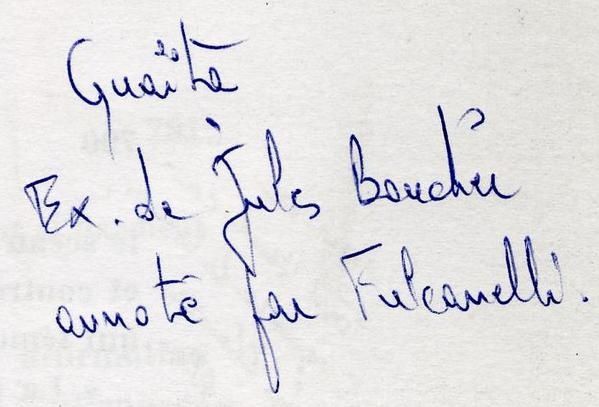 Guaita
Ex. de Jules Boucher
annoté par Fulcanelli.